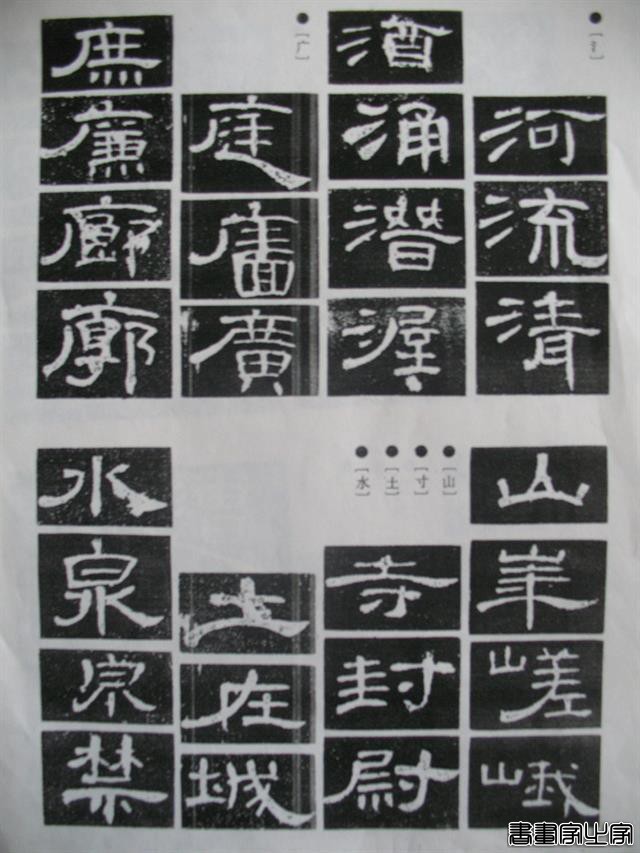 ●[氵]
河流清
酒涌潜渥
●[广]
庭廣
庶廉廊廓
●[山]
●[寸]
●[土]
●[水]
山嵯峨
寺封尉
土在城
水泉宗禁
書畫家之家